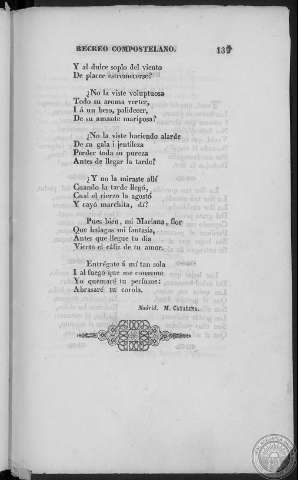 RECREO COMPOSTELANO.
Y al dulce soplo del viento
De placer estremecerse?
¿No la viste voluptuosa
Todo su aroma verter,
I á un beso, palidecer,
De su amante mariposa?
¿No la viste haciendo alarde
De su gala i jentileza
Perder toda su pureza
Antes de llegar la tarde?
¿Y no la miraste allí
Cuando la tarde llegó,
Cual el cierzo la agostó
Y cayó marchita, dí?
Pues bien, mi Mariana, flor
Que halagas mi fantasia,
Antes que llegue tu dia
Vierte el cáliz de tu amor.
Entrégate á mí tan sola
I al fuego que me consume
Yo quemaré tu perfume:
Abrasaré tu corola.
Madrid. M. CATALINA.